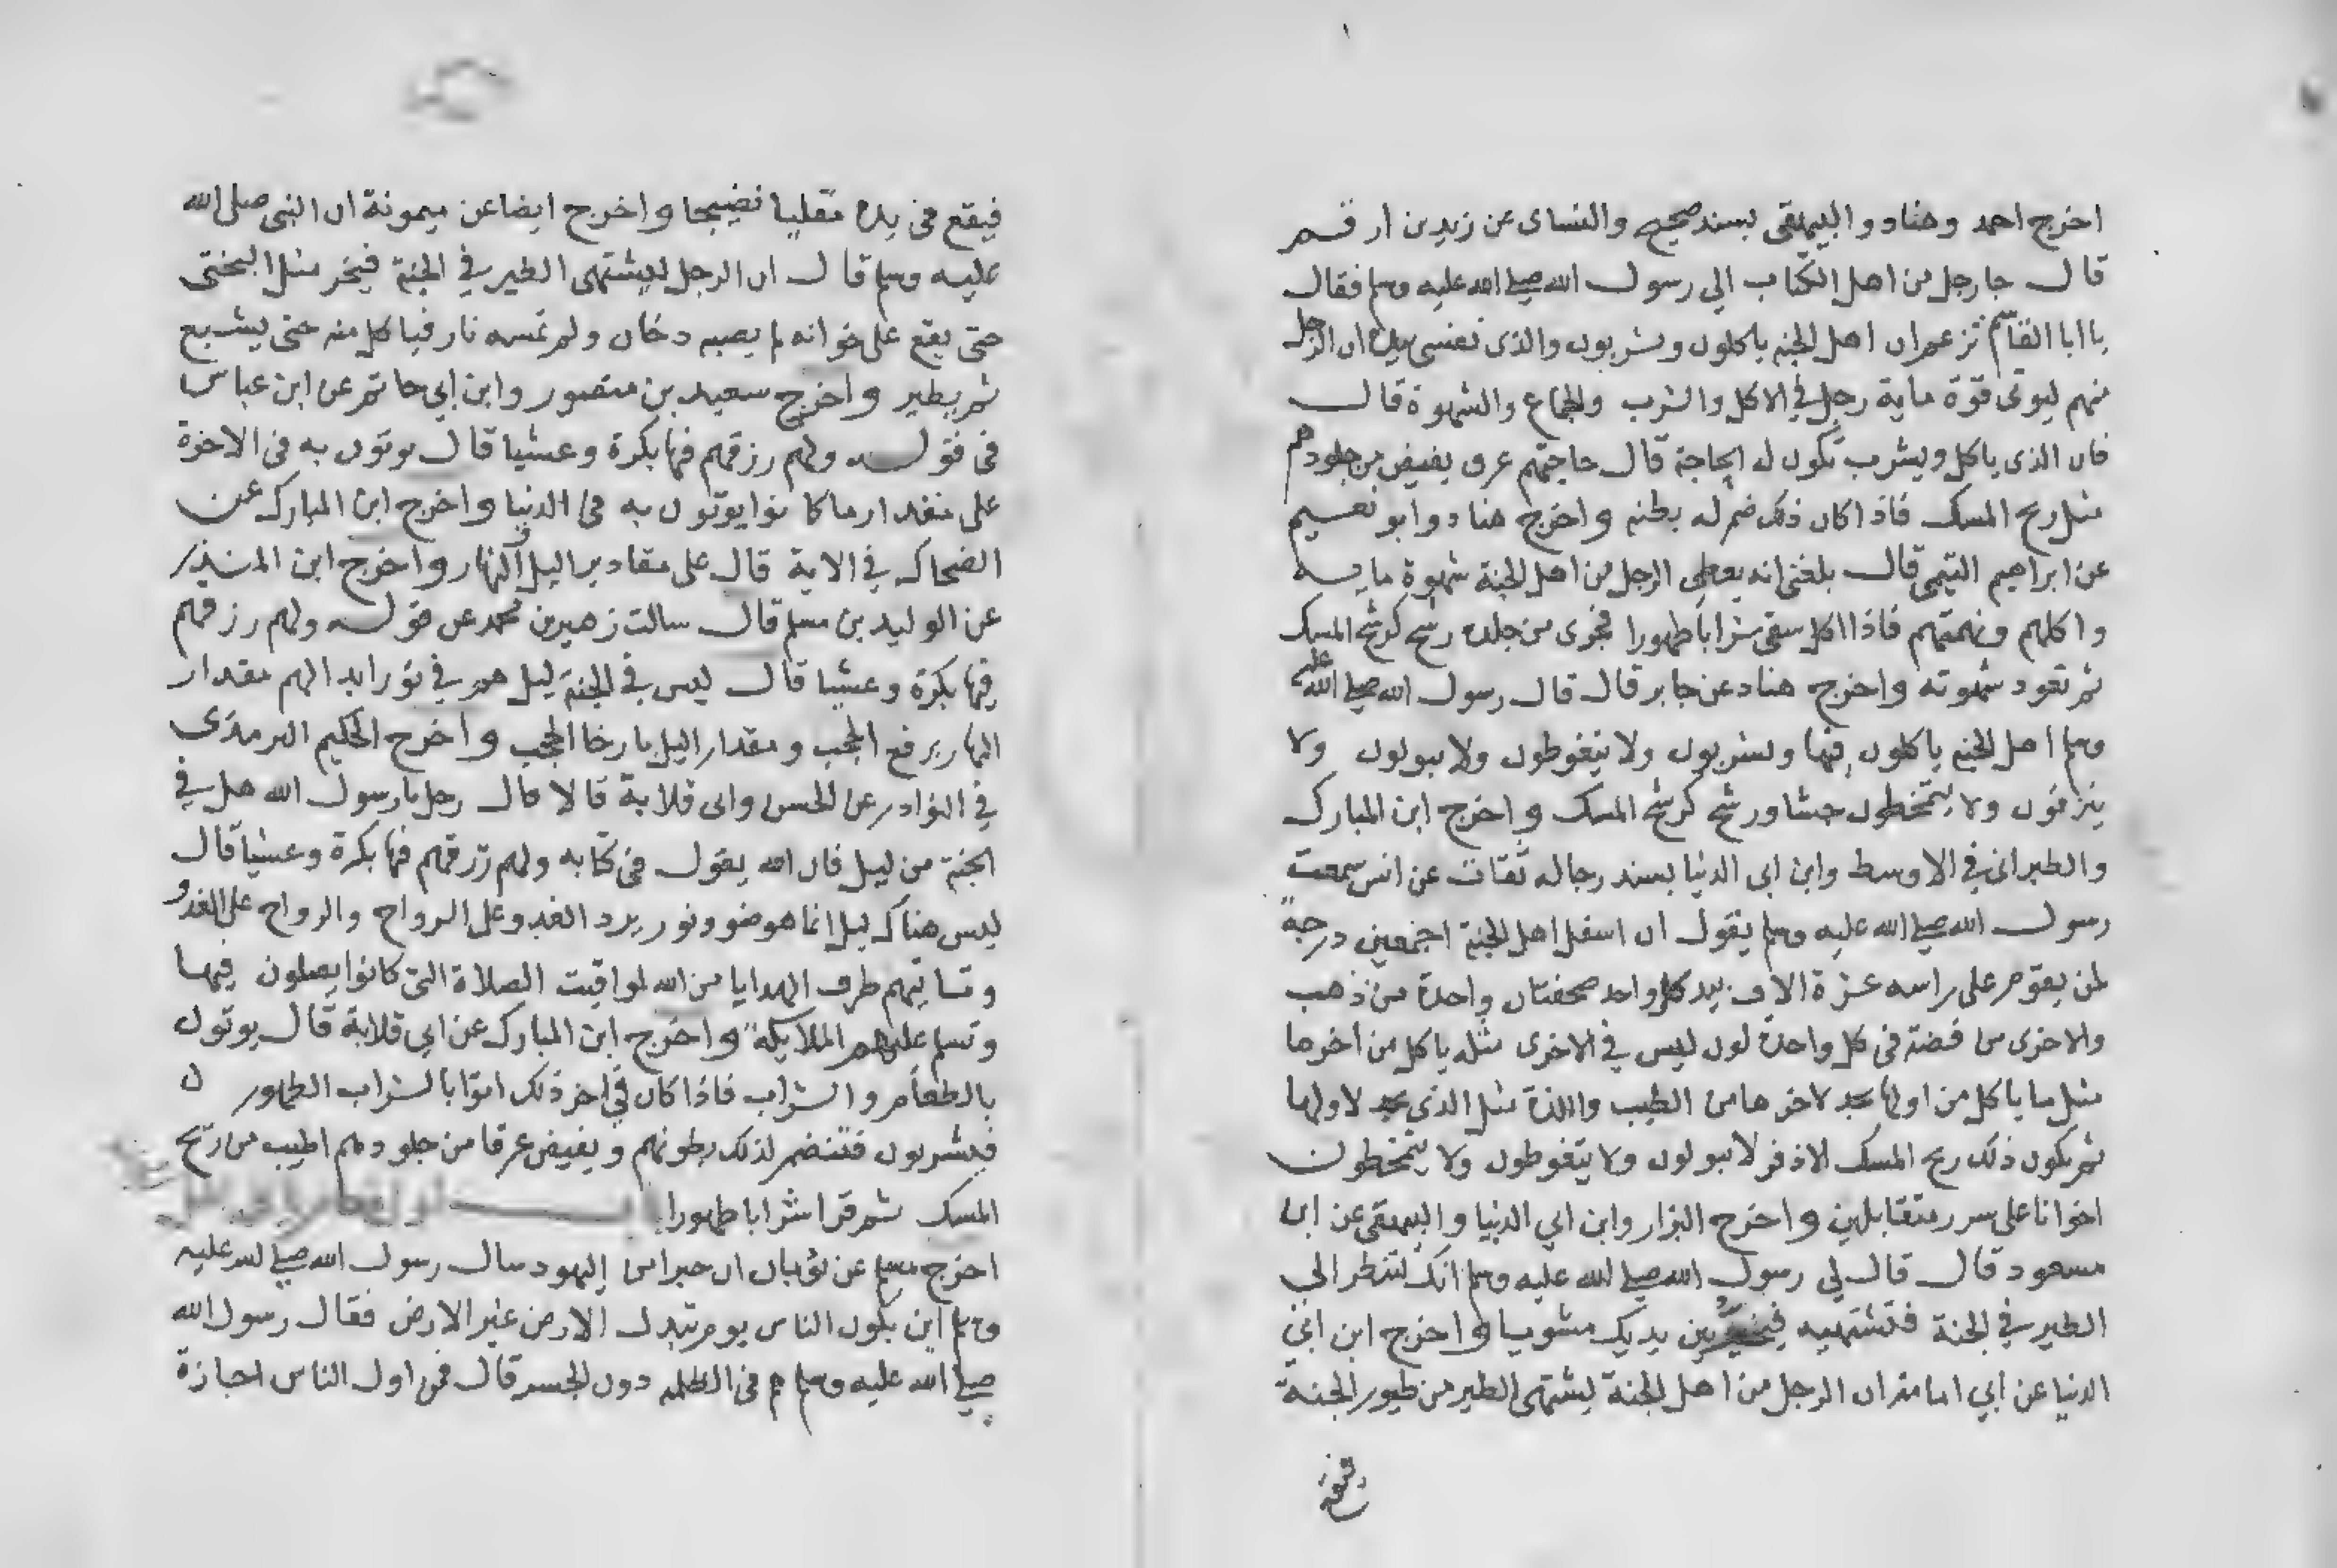 اخرج احمد وهناد والبيهقى بسند صحيح والنساى عن زيد بن ارقم
قال جا رجل من اهل الكتاب الي رسول الله صلي الله عليه وسلم فقال
يا ابا القاسم تزعم ان اهل الجنة ياكلون ويشربون والذى نفسى بيده ان الرجل
منهم ليوتى قوة ماية رجل في الاكل والشرب والجماع والشهوة قال
فان الذى ياكل ويشرب تكون له الحاجة قال حاجتهم عرق يفيض من جلودهم
مثل ريح المسك فاذا كان ذلك ضمر له بطنه واخرج هناد وابو نعيم
عن ابراهيم التيمى قال بلغنى انه يعطى الرجل من اهل الجنة شهوة ماية
واكلهم ونهمتهم فاذا اكل سقى شرابا طهورا فيجرى من جلده رشح كرشح المسك
ثم تعود شهوته واخرج هناد عن جابر قال قال رسول الله صلي الله عليه
وسلم اهل الجنة ياكلون فيها ويشربون ولا يتغوطون ولا يبولون ولا
ينزفون ولا يتمخطون جشا ورشح كرشح المسك واخرج ابن المبارك
والطبرانى في الاوسط وابن ابى الدنيا بسند رجاله ثقات عن انس سمعت
رسول الله صلي الله عليه وسلم يقول ان اسفل اهل الجنة اجمعين درجة
لمن يقوم على راسه عشرة الاف بيد كل واحد صحفتان واحدة من ذهب
والاخرى من فضة فى كل واحدة لون ليس في الاخرى مثله ياكل من اخرها
مثل ما ياكل من اولها يجد لاخرها من الطيب واللذة مثل الذى يجد لاولها
ثم يكون ذلك ريح المسك الاذفر لا يبولون ولا يتغوطون ولا يتمخطون
اخوانا على سرر متقابلين واخرج البزار وابن ابي الدنيا والبيهقى عن ابن
مسعود قال قال لي رسول الله صلي الله عليه وسلم انك لتنظر الى
الطير في الجنة فتشتهيه فيخر بين يديك مشويا واخرج ابن ابى
الدنيا عن ابي امامة ان الرجل من اهل الجنة ليشتهى الطير من طيور الجنة
فيقع
فيقع فى يده مقليا نضيجا واخرج ايضا عن ميمونة ان النبى صلى الله
عليه وسلم قال ان الرجل ليشتهى الطير في الجنة فيخر مثل البختى
حتى يقع على خوانه لم يصبه دخان ولم تمسه نار فياكل منه حتى يشبع
ثم يطير واخرج سعيد بن منصور وابن ابي حاتم عن ابن عباس
فى قوله ولهم رزقهم فيها بكرة وعشيا قال يوتون به فى الاخرة
على مقدار ما كانوا يوتون به فى الدنيا واخرج ابن المبارك عن
الضحاك في الاية قال على مقادير اليل والنهار واخرج ابن المنذر
عن الوليد بن مسلم قال سالت زهير بن محمد عن قوله ولهم رزقهم
فيها بكرة وعشيا قال ليس في الجنة ليل هم في نور ابدا لهم مقدار
النهار برفع الحجب ومقدار اليل بارخا الحجب واخرج الحكيم الترمذى
في النوادر عن الحسن وابى قلابة قالا قال رجل يا رسول الله هل في
الجنة من ليل فان الله يقول فى كتابه ولهم رزقهم فيها بكرة وعشيا قال
ليس هناك ليل انما هو ضوو ونور يرد الغدو على الرواح والرواح على الغدو
وتاتيهم طرف الهدايا من الله لمواقيت الصلاة التى كانوا يصلون فيها
وتسلم عليهم الملايكة واخرج ابن المبارك عن ابي قلابة قال يوتون
بالطعام والشراب فاذا كان في اخر ذلك اتوا بالشراب الطهور ن
فيشربون فتضمر لذلك بطونهم ويفيض عرقا من جلودهم اطيب من ريح
المسك ثم قرا شرابا طهورا
اخرج مسلم عن ثوبان ان حبرا من اليهود سال رسول الله صلي الله عليه
وسلم اين يكون الناس يوم تبدل الارض غير الارض فقال رسول الله
صلي الله عليه وسلم هم فى الظلمة دون الجسر قال فمن اول الناس اجازة